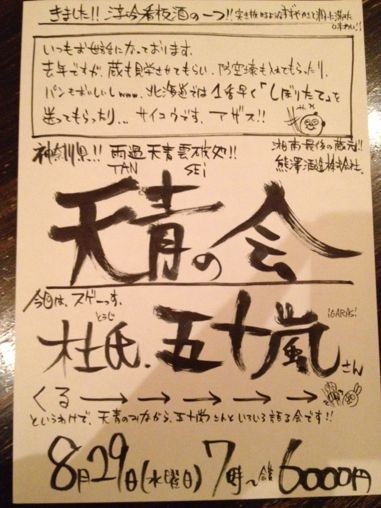 きました!! 淳吟看板酒の一つ!!
いつもお世話になっております。
去年ですが、蔵も見学させてもらい、防空壕も入れてもらったり、
パンもおいしいしwww、北海道では1番早く「しぼりたて」を
送ってもらったり... サイコウです、アザス!!
神奈川県!! 雨過天青雲破処!!
TEN SEI
湘南最後の蔵元!!
熊澤酒造株式会社。
天青の会
今回は、スゲーっす。
とうじ
iGARASi
杜氏、五十嵐さん
くる→→→→→
というわけで、天青のみながら、五十嵐さんといろいろ語る会です!!
8月29日(水曜日)7時〜 会費6000円